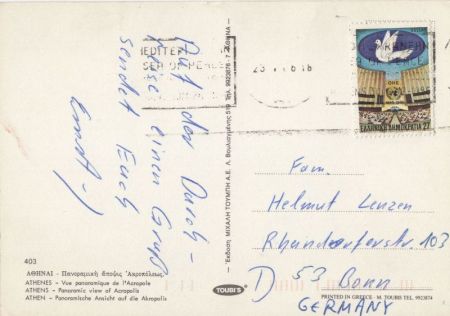 Auf der Durch-
reise einen Gruß
sendet Euch
Ernst
MEDITER
SEA OF PEACE
23
ΕΛΛΗΝΙΚΗ ΔΗΜΟΚΡΑΤΙΑ 27
Fam.
Helmut Lenzen
Rheindorferstr. 103
D) 53 Bonn
GERMANY
Έκδοση ΜΙΧΑΛΗ ΤΟΥΜΠΗ Α.Ε. Λ. Βουλιαγμένης 519 Τηλ. 9923876 - 7 ΑΘΗΝΑ
403
ΑΘΗΝΑΙ - Πανοραμική άποψις Ἀκροπόλεως
ATHENES - Vue panoramique de l'Acropole
ATHENS - Panoramic view of Acropolis
ATHEN - Panoramische Ansicht auf die Akropolis
TOUBI'S
PRINTED IN GREECE - M. TOUBIS TEL. 9923874